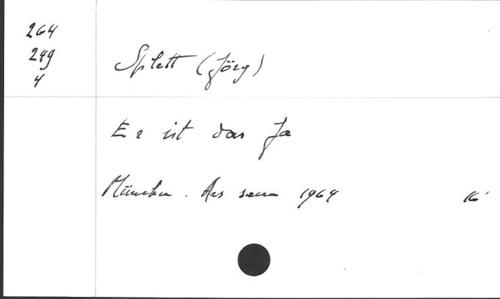 264
249
4
Splett (Jörg)
Er ist das Ja
München. Ars sacra 1964
16°